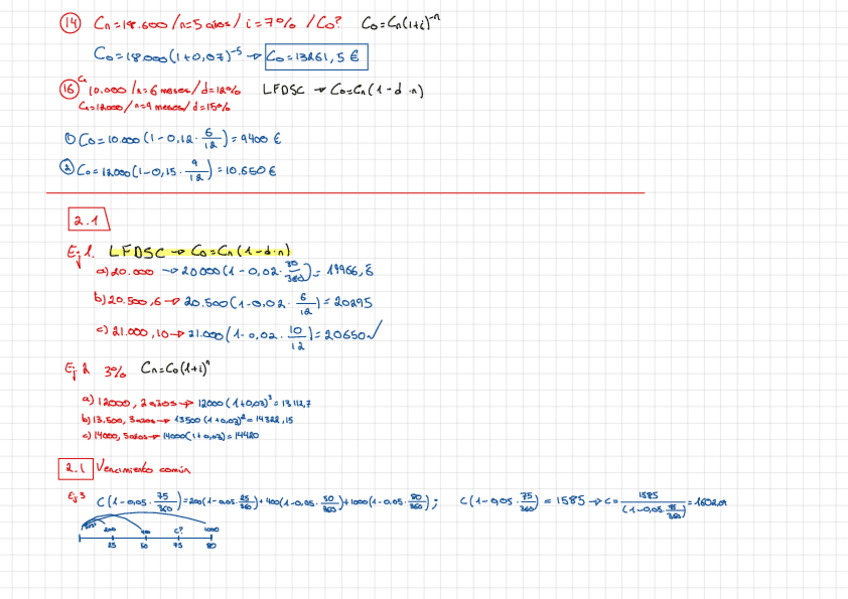 14 Cn=18.600/n=5 años/i=7% /Co? Co=Cn(1+i)^-n
Co=18.000(1+0,07)^-5 → Co=13261,5 €
16 Cn 10.000/n=6 meses/d=12% LFDSC → Co=Cn(1-d·n)
Cn=12000/n=9 meses/d=15%
① Co=10.000(1-0,12·6/12)=9400 €
② Co=12000(1-0,15·9/12)=10.650€
2.1
Ej 1. LFDSC → Co=Cn(1-d·n)
a) 20.000 → 20000(1-0,02·30/360)=19966,6
b) 20.500,6 → 20.500(1-0,02·6/12)=20295
c) 21.000,10 → 21.000(1-0,02·10/12)=20650✓
Ej 2 3% Cn=Co(1+i)^n
a) 12000, 2 años → 12000(1+0,03)^3=13112,7
b) 13.500, 3 años → 13500(1+0,03)^2=14322,15
c) 14000, 5 años → 14000(1+0,03)=14420
2.1 Vencimiento común
Ej 3 C(1-0,05·75/360)=200(1-0,05·25/360)+400(1-0,05·50/360)+1000(1-0,05·80/360); C(1-0,05·75/360)=1585 → C=1585/(1-0,05·75/360)=1602,01
200 400 C? 1000
25 50 75 80